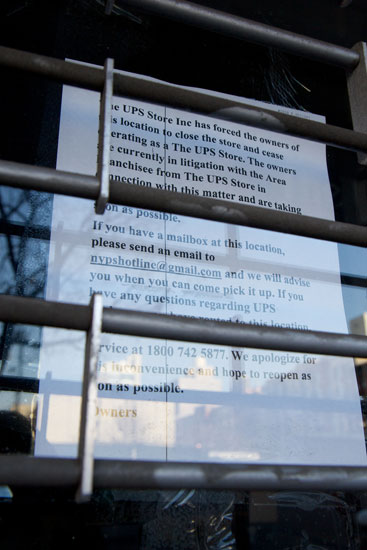 he UPS Store Inc has forced the owners of
is location to close the store and cease
erating as a The UPS Store. The owners
e currently in litigation with the Area
anchisee from The UPS Store in
nnection with this matter and are taking
on as possible.
If you have a mailbox at this location,
please send an email to
nypshotline@gmail.com and we will advise
you when you can come pick it up. If you
have any questions regarding UPS
to this location
rvice at 1800 742 5877. We apologize for
is inconvenience and hope to reopen as
on as possible.
Owners